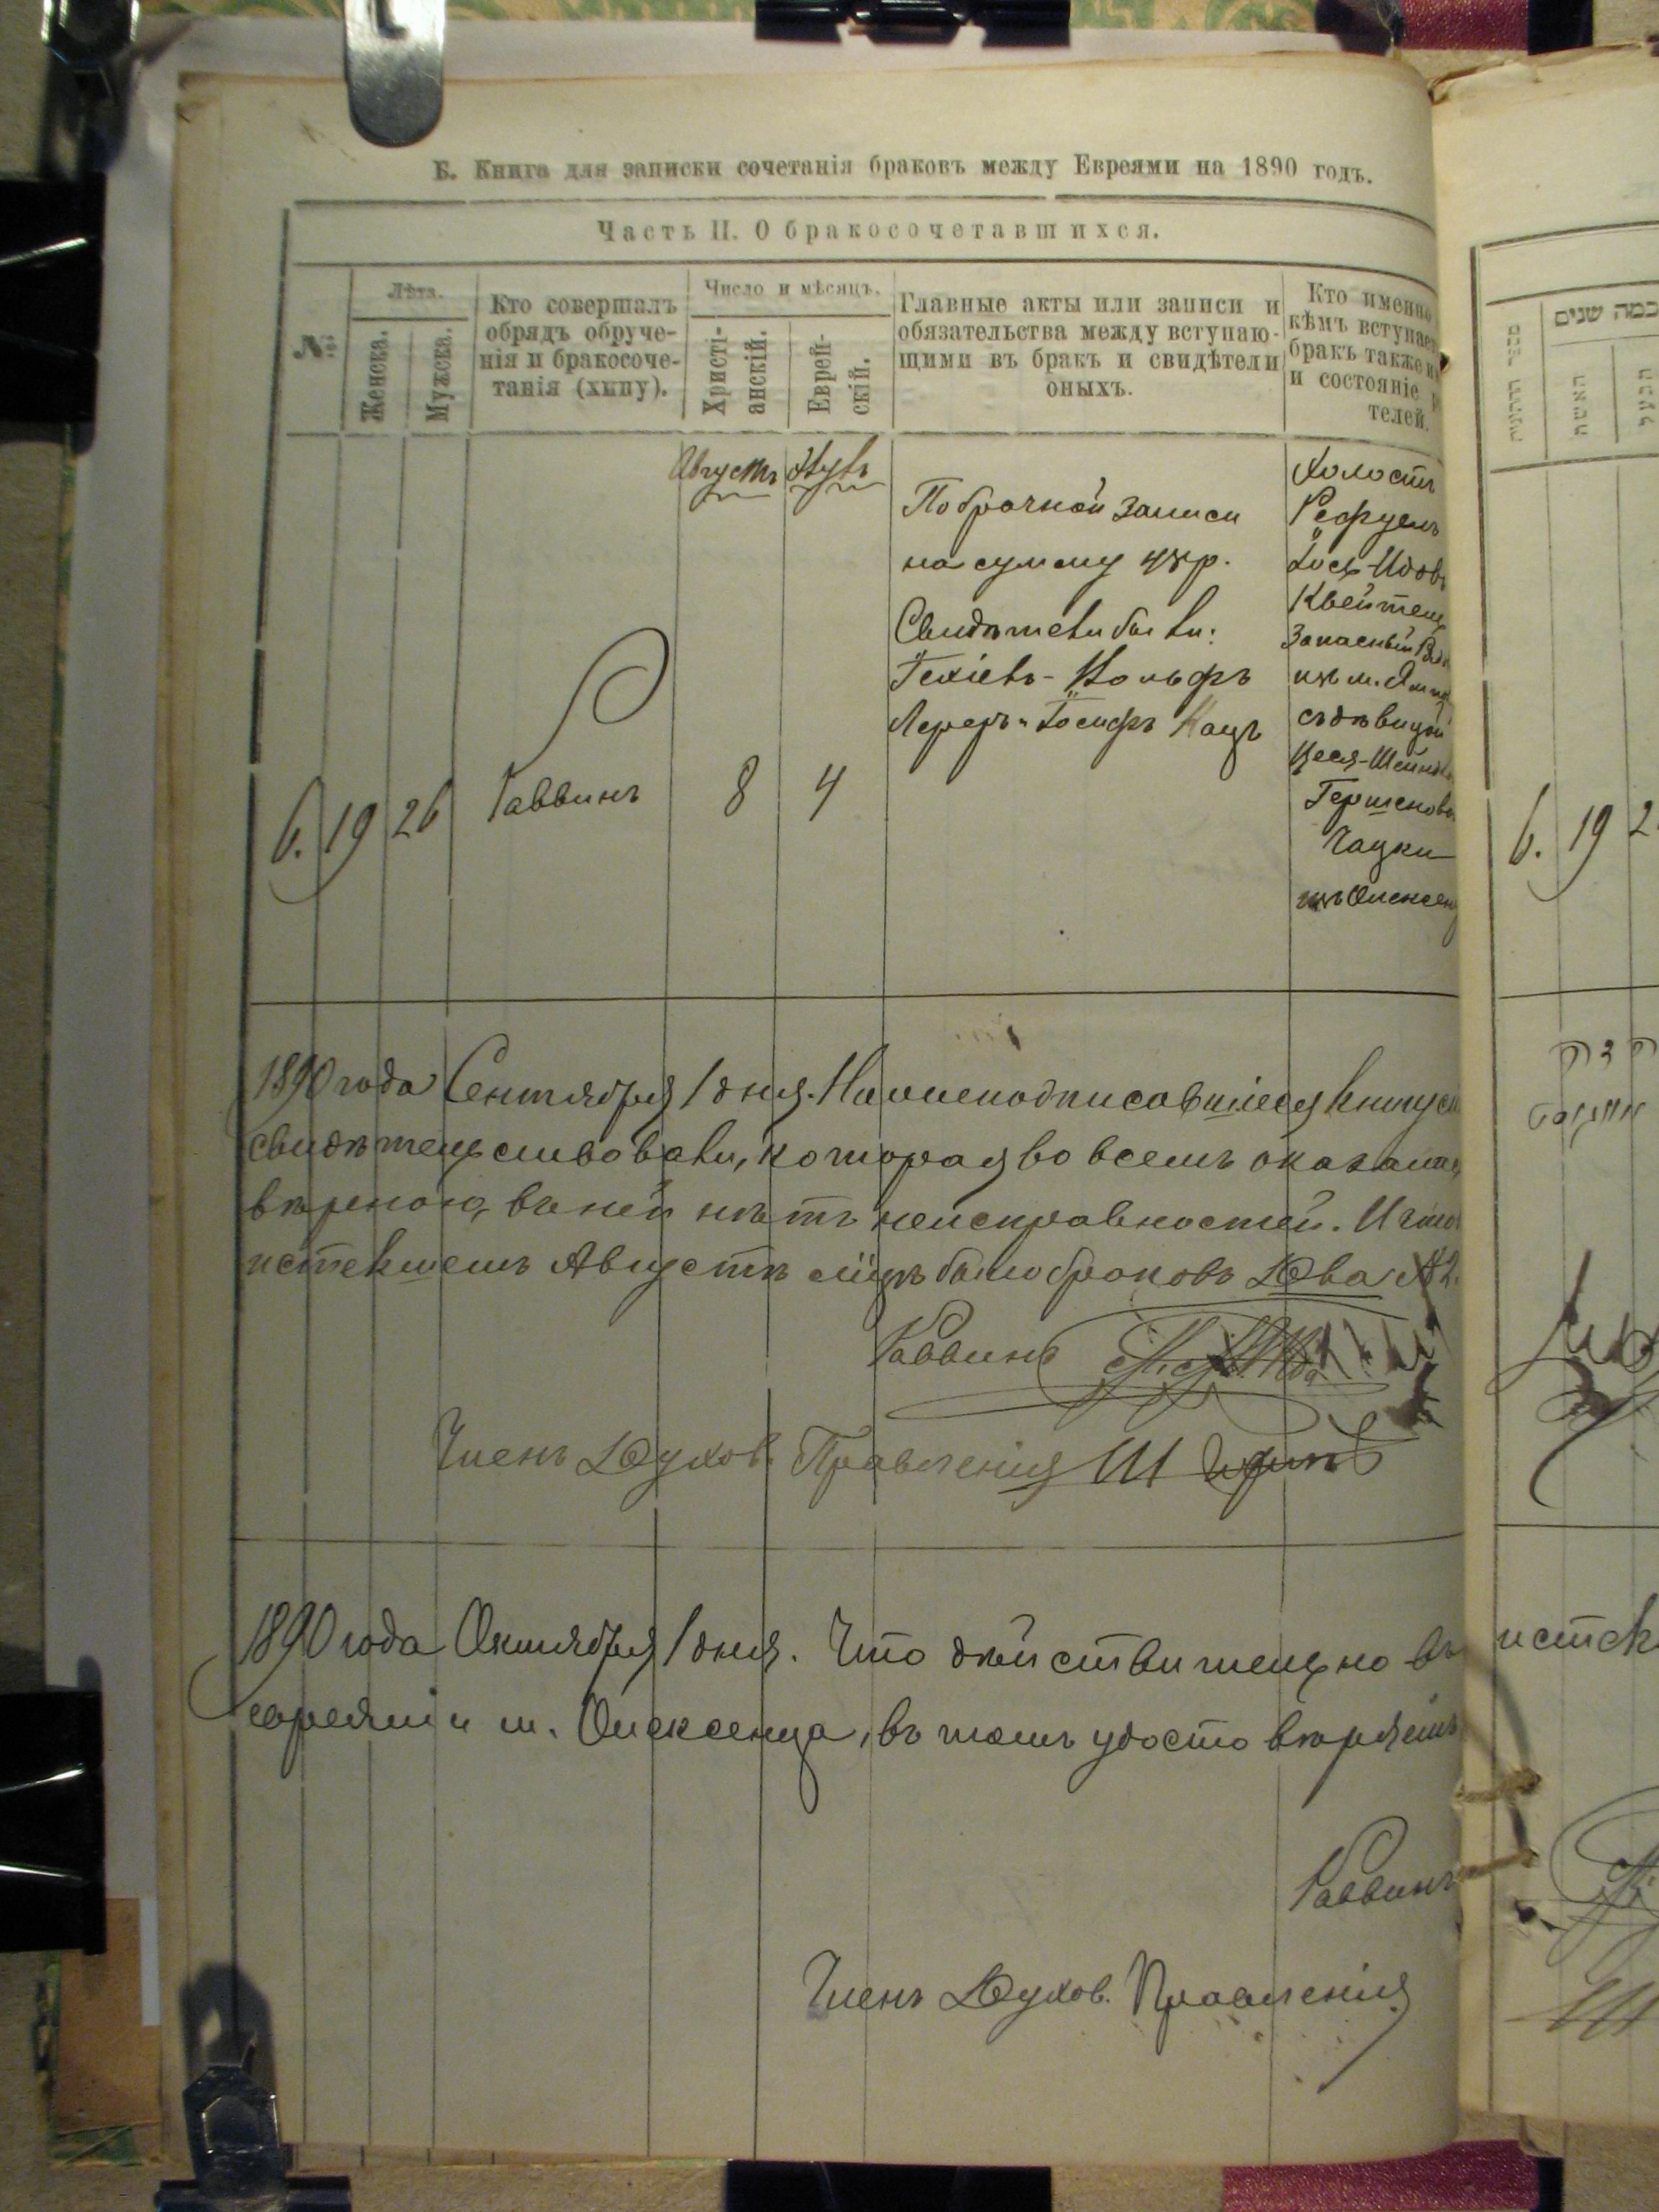 Б. Книга для записки сочетанія браковъ между Евреями на 1890 годъ.
Часть II. О бракосочетавшихся.
№
Лѣта.
Женска.
Мужска.
Кто совершалъ
обрядъ обруче-
нія и бракосоче-
танія (хипу).
Число и мѣсяцъ.
Христі-
анскій.
Еврей-
скій.
Главные акты или записи и
обязательства между вступаю-
щими въ бракъ и свидѣтели
оныхъ.
Кто именно
кѣмъ вступае
бракъ также и
и состояніе р
телей.
Августъ
По брачной записи
на сумму 48 р.
Свидѣтели были:
Іехіель-Вольфъ
Лереръ и Іосифъ Кацъ
Холостъ
Рефуелъ
Іось-Идовъ
Квейтель
Запасный Ряд
изъ м.
съ дѣвицей
Цеся-Шейндл
Гершенова
Чацки
изъ Олексен
6.
19
26
Раввинъ
8
4
1890 года Сентября 1 дня. Нижеподписавшіеся книгу с
свидѣтельствовали, которая во всемъ оказалась
вѣрною, въ ней нѣтъ неисправностей. И что
истекшемъ Августѣ мѣцѣ было браковъ Два №2.
Раввинъ
Членъ Духов. Правленія Ш
1890 года Октября 1 дня. Что дѣйствительно въ
евреями м. Олексенца, въ томъ удостовѣряемъ
Раввинъ
Членъ Духов. Правленія
כמה שנים
האשה
הבעל
6.
19
2
истек